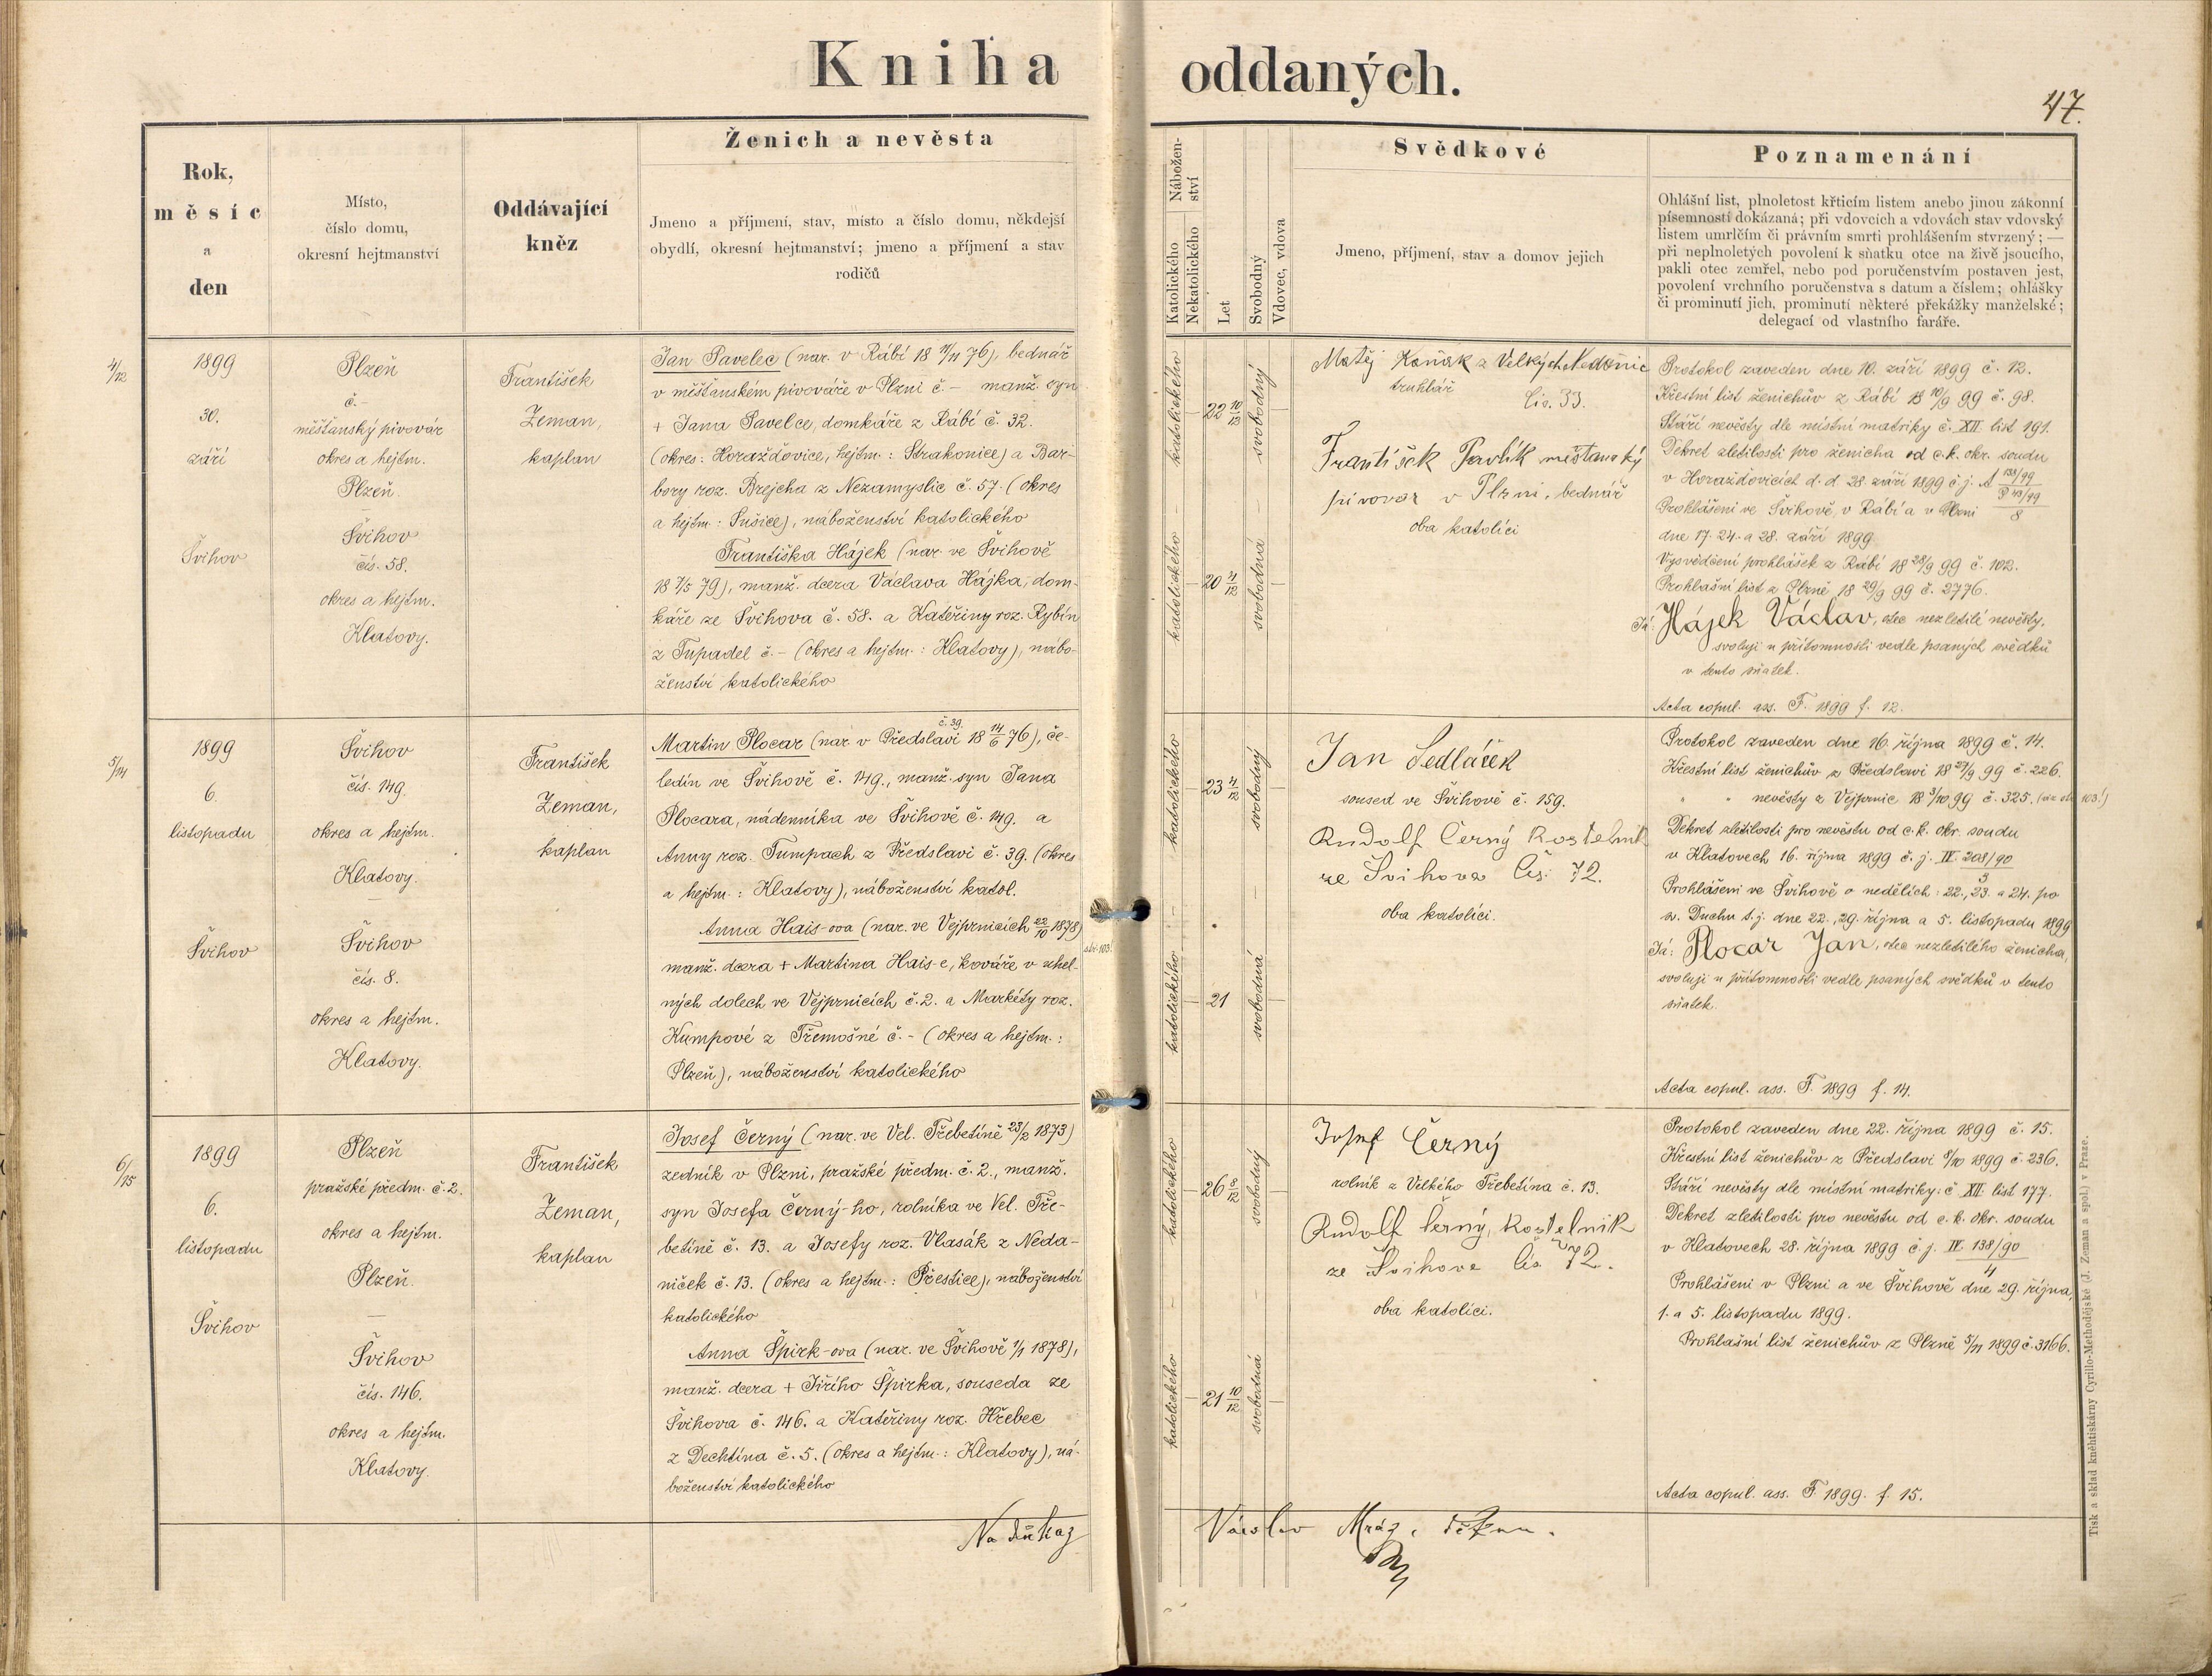 Kniha oddaných.
47.
Rok,
měsíc
a
den
Místo,
číslo domu,
okresní hejtmanství
Oddávající
kněz
Ženich a nevěsta
Jmeno a příjmení, stav, místo a číslo domu, někdejší
obydlí, okresní hejtmanství; jmeno a příjmení a stav
rodičů
Nábožen-
ství
Katolického
Nekatolického
Let
Svobodný
Vdovec, vdova
Svědkové
Jmeno, příjmení, stav a domov jejich
Poznamenání
Ohlášní list, plnoletost křticím listem anebo jinou zákonní
písemností dokázaná; při vdovcích a vdovách stav vdovský
listem umrlčím či právním smrti prohlášením stvrzený; —
při neplnoletých povolení k sňatku otce na živě jsoucího,
pakli otec zemřel, nebo pod poručenstvím postaven jest,
povolení vrchního poručenstva s datum a číslem; ohlášky
či prominutí jich, prominutí některé překážky manželské;
delegací od vlastního faráře.
4/12
1899
30.
září
Švihov
Plzeň
č. -
měšťanský pivovár
okres a hejtm.
Plzeň
—
Švihov
čís. 58.
okres a hejtm.
Klatovy.
František
Zeman,
kaplan
Jan Pavelec (nar. v Rábí 18 11/11 76), bednář
v měšťanském pivováře v Plzni č. - manž. syn
+ Jana Pavelce, domkáře z Rábí č. 32.
(okres: Horažďovice, hejtm.: Strakonice) a Bar-
bory roz. Brejcha z Nezamyslic č. 57. (okres
a hejtm.: Sušice), náboženství katolického
Františka Hájek (nar. ve Švihově
18 7/5 79), manž. dcera Václava Hájka, dom-
káře ze Švihova č. 58. a Kateřiny roz. Rybín
z Tupadel č. - (okres a hejtm.: Klatovy), nábo-
ženství katolického
katolického — 22 10/12 svobodný —
katolického — 20 4/12 svobodná —
Matěj Kaňák z Velkých
truhlář čís. 33.
František Pavlík měšťanský
pivovar v Plzni, bednář
oba katolíci
Protokol zaveden dne 10. září 1899 č. 12.
Křestní list ženichův z Rábí 18 10/9 99 č. 98.
Stáří nevěsty dle místní matriky č. XII. list 191.
Dekret zletilosti pro ženicha od c.k. okr. soudu
v Horažďovicích d. d. 28. září 1899 č. j. A 133/99
8
Prohlášeni ve Švihově, v Rábí a v Plzni
dne 17. 24. a 28. září 1899
Vysvědčení prohlášek z Rábí 18 28/9 99 č. 102.
Prohlašní list z Plzně 18 29/9 99 č. 2776.
Já: Hájek Václav, otec nezletilé nevěsty,
svoluji u přítomnosti vedle psaných svědků
v tento sňatek.
Acta copul. ass. F. 1899 f. 12.
5/14
1899
6.
listopadu
Švihov
Švihov
čís. 149.
okres a hejtm.
Klatovy.
—
Švihov
čís. 8.
okres a hejtm.
Klatovy.
František
Zeman,
kaplan
č. 39.
Martin Plocar (nar. v Předslavi 18 14/6 76), če-
ledín ve Švihově č. 149., manž. syn Jana
Plocara, nádenníka ve Švihově č. 149. a
Anny roz. Tumpach z Předslavi č. 39. (okres
a hejtm.: Klatovy), náboženství katol.
Anna Hais-ova (nar. ve Vejprnicích 22/10 1878)
manž. dcera + Martina Hais-e, kováře v uhel-
ných dolech ve Vejprnicích č. 2. a Markéty roz.
Kumpové z Třemošné č. - (okres a hejtm.:
Plzeň), náboženství katolického
katolického — 23 4/12 svobodný —
katolického — 21 svobodná —
Jan Sedláček
soused ve Švihově č. 159.
Rudolf Černý Kostelník
ze Švihova čís. 72.
oba katolíci.
Protokol zaveden dne 16. října 1899 č. 14.
Křestní list ženichův z Předslavi 18 27/9 99 č. 226.
" " nevěsty z Vejprnic 18 3/10 99 č. 325. (viz str. 103!)
Dekret zletilosti pro nevěstu od c.k. okr. soudu
v Klatovech 16. října 1899 č. j. IV. 208/90
3
Prohlášeni ve Švihově o nedělích: 22., 23. a 24. po
sv. Duchu t. j. dne 22., 29. října a 5. listopadu 1899
Já: Plocar Jan, otec nezletilého ženicha,
svoluji u přítomnosti vedle psaných svědků v tento
sňatek.
Acta copul. ass. F. 1899 f. 14.
6/15
1899
6.
listopadu
Švihov
Plzeň
pražské předm. č. 2.
okres a hejtm.
Plzeň.
—
Švihov
čís. 146.
okres a hejtm.
Klatovy.
František
Zeman,
kaplan
Josef Černý (nar. ve Vel. Třebetíně 23/2 1873)
zedník v Plzni, pražské předm. č. 2., manž.
syn Josefa Černý-ho, rolníka ve Vel. Tře-
betíně č. 13. a Josefy roz. Vlasák z Neda-
niček č. 13. (okres a hejtm.: Přestice), náboženství
katolického
Anna Špirk-ova (nar. ve Švihově 1/1 1878),
manž. dcera + Jiřího Špirka, souseda ze
Švihova č. 146. a Kateřiny roz. Hřebec
z Dechtína č. 5. (okres a hejtm.: Klatovy), ná-
boženství katolického
katolického — 26 8/12 svobodný —
katolického — 21 10/12 svobodná —
Josef Černý
rolník z Velkého Třebetína č. 13.
Rudolf Černý, Kostelník
ze Švihova čís 72.
oba katolíci.
Protokol zaveden dne 22. října 1899 č. 15.
Křestní list ženichův z Předslavi 8/10 1899 č. 236.
Stáří nevěsty dle místní matriky: č XII. list 177.
Dekret zletilosti pro nevěstu od c. k. okr. soudu
v Klatovech 28. října 1899 č. j. IV. 138/90
4
Prohlášeni v Plzni a ve Švihově dne 29. října,
1. a 5. listopadu 1899.
Prohlašní list ženichův z Plzně 5/11 1899 č. 3166.
Acta copul. ass. F. 1899. f. 15.
Na důkaz Václav Mráz, děkan.
Tisk a sklad knihtiskárny Cyrillo-Methodějské (J. Zeman a spol.) v Praze.